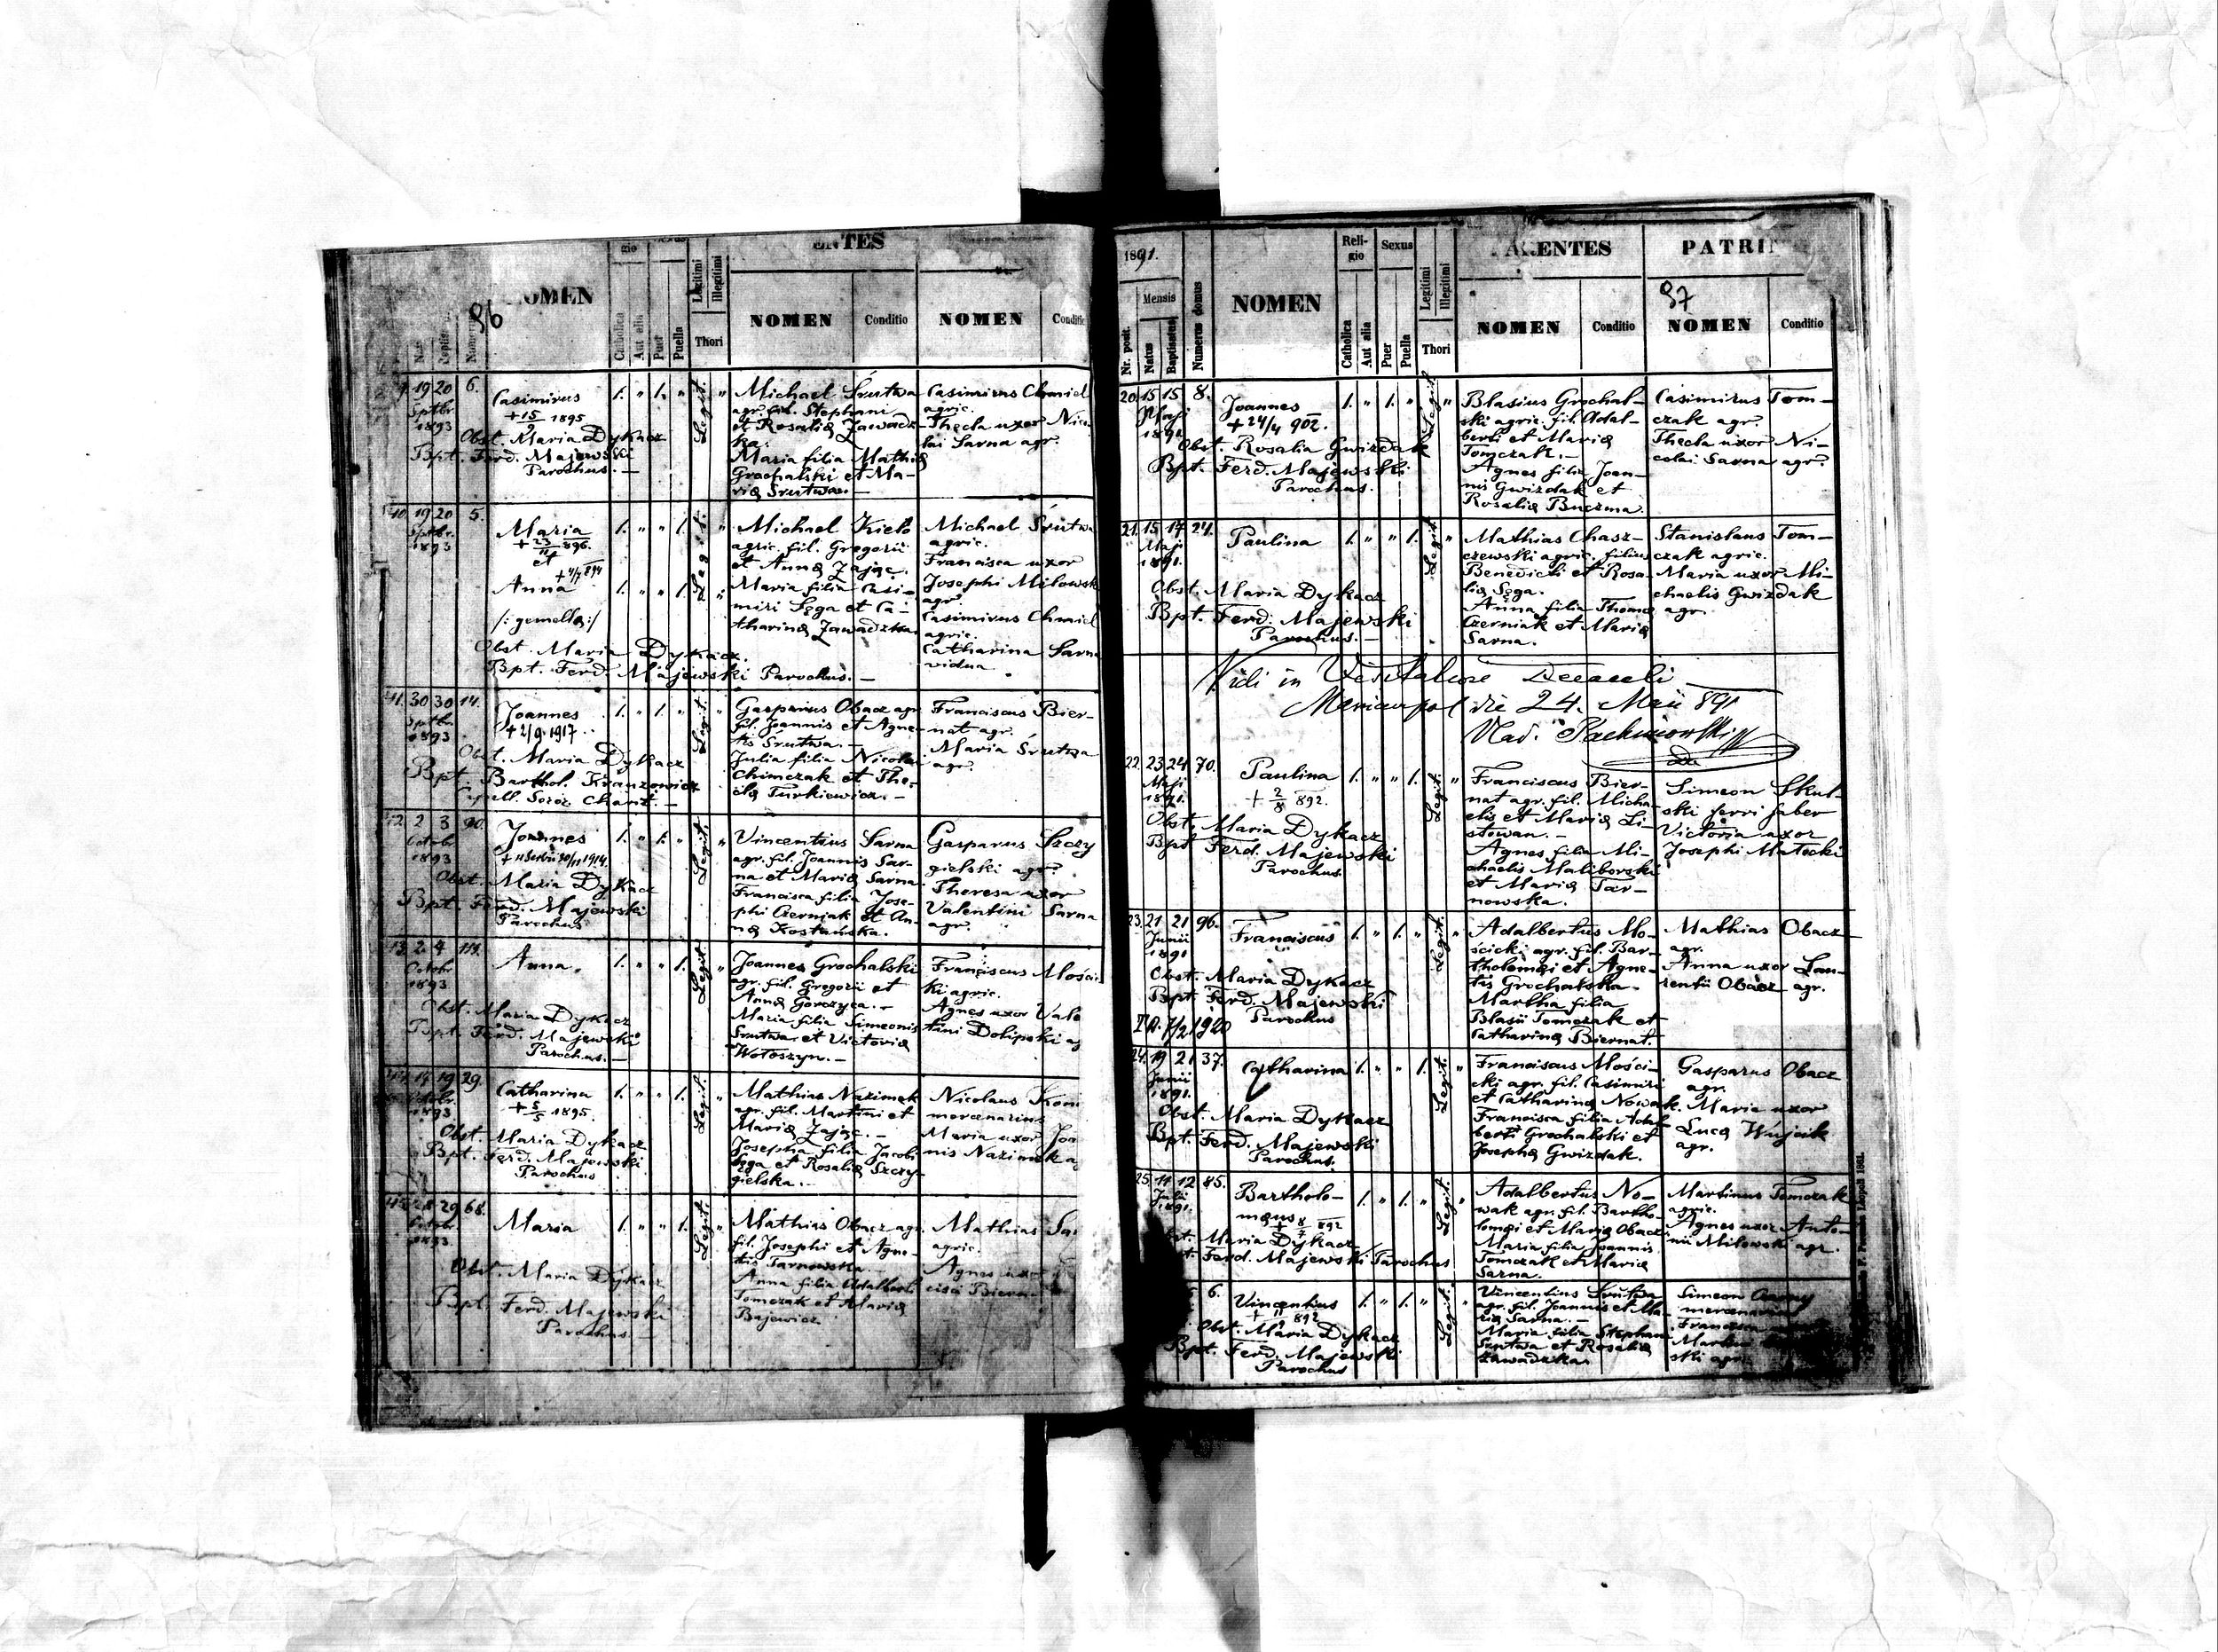 96
NOMEN
Catholica
Aut alia
Puer
Puella
Legitimi
Illegitimi
Thori
ENTES
NOMEN
Conditio
NOMEN
19 20 6.
Sptbr.
1893
Casimirus
+ 15/9 1895
Obst. Maria Dykacz
Bpt. Ferd. Majewski
Parochus. —
1. " 1. "
Legit.
Michael Śrutwa
agr. fil. Stephani
et Rosaliæ Zawadz-
ka.
Maria filia Mathiæ
Grochalski et Ma-
riæ Śrutwa. —
Casimirus Chmiel
agric.
Thecla uxor Nico-
lai Sarna agr.
19 20 5.
Sptbr.
1893
Maria
et
Anna
/: gemellæ :/
Obst. Maria Dykacz.
Bpt. Ferd. Majewski Parochus. —
1. " " 1.
1. " " 1.
Michael Kieło
agric. fil. Gregorii
et Annæ Zając.
Maria filia Casi-
miri Sęga et Ca-
tharinæ Zawadzka.
Michael Śrutwa
agric.
Francisca uxor
Josephi Milowski
agr.
Casimirus Chmiel
agric.
Catharina Sarna
vidua
41. 30 30 14.
Sptbr.
1893
Joannes
+ 2/9 1917
Obst. Maria Dykacz
Bpt. Barthol. Franzowicz
Capell. Soror. Charit. —
1. " 1. "
Legit.
Gasparius Obacz agr
fil. Joannis et Agne-
tis Śrutwa. —
Julia filia Nicolai
Chimczak et The-
clæ Turkiewicz. —
Franciscus Bier-
nat agr.
Maria Śrutwa
agr.
42. 2 3 90.
Octobr.
1893
Joannes
Obst. Maria Dykacz
Bpt. Ferd. Majewski
Parochus
1. " 1. "
Legit.
Vincentius Sarna
agr. fil. Joannis Sar-
na et Mariæ Sarna
Francisca filia Jose-
phi Czerniak et An-
næ Kostańska.
Gasparus Szczy
gielski agr.
Theresa uxor
Valentini Sarna
agr.
43. 2 4
Octobr.
1893
Anna.
Obst. Maria Dykacz
Bpt. Ferd. Majewski
Parochus. —
1. " " 1.
Legit.
Joannes Grochalski
agr. fil. Gregorii et
Annæ Gorczyca. —
Maria filia Simeonis
Śrutwa et Victoriæ
Wołoszyn. —
Franciscus Mości
ki agric.
Agnes uxor Vale
tini Dolipski
19 29.
Octobr.
1893
Catharina
+ 5/5 1895.
Obst. Maria Dykacz
Bpt. Ferd. Majewski
Parochus
1. " " 1.
Legit.
Mathias Nazimek
agr. fil. Martini et
Mariæ Zając. —
Josepha filia Jacobi
Sęga et Rosaliæ Szczy-
gielska. —
Nicolaus
mercenarius
Maria uxor Joa
nis Nazimek
29 68.
1893
Maria
Obst. Maria Dykacz
Bpt. Ferd. Majewski
Parochus. —
1. " " 1.
Legit.
Mathias Obacz agr.
fil. Josephi et Agne-
tis Tarnowska. —
Anna filia Adalberti
Tomczak et Mariæ
Bajewicz
Mathias
agric.
Agnes
1891.
97
Nr. posit.
Mensis
Natus
Baptisatus
Numerus domus
NOMEN
Reli-
gio
Catholica
Aut alia
Sexus
Puer
Puella
Legitimi
Illegitimi
Thori
PARENTES
NOMEN
Conditio
PATRIN
NOMEN
Conditio
20. 15 15 8.
Maji
1891.
Joannes
+ 24/4 902.
Obst. Rosalia Gwizdak
Bpt. Ferd. Majewski
Parochus.
1. " 1. "
Legit.
Blasius Grochal-
ski agric. fil. Adal-
berti et Mariæ
Tomczak. —
Agnes filia Joan-
nis Gwizdak et
Rosaliæ Buczma.
Casimirus Tom-
czak agr.
Thecla uxor Ni-
colai Sarna agr.
21. 15 17 24.
Maji
1891.
Paulina
Obst. Maria Dykacz
Bpt. Ferd. Majewski
Parochus. —
1. " " 1.
Legit.
Mathias Chasz-
czewski agric. filius
Benedicti et Rosa-
liæ Sęga.
Anna filia Thomæ
Czerniak et Mariæ
Sarna.
Stanislaus Tom-
czak agric.
Maria uxor Mi-
chaelis Gwizdak
agr.
Vidi in Visitatione Decanali
Mariampol die 24. Maii 891
22. 23 24 70.
Maji
1891.
Paulina
+ 2/8 892.
Obst. Maria Dykacz
Bpt. Ferd. Majewski
Parochus
1. " " 1.
Legit.
Franciscus Bier-
nat agr. fil. Micha-
elis et Mariæ Li-
stowan. —
Agnes filia Mi-
chaelis Maliborski
et Mariæ Tar-
nowska.
Simeon Skul-
ski ferri faber
Victoria uxor
Josephi Małecki
23. 21 21 96.
Junii
1891
Franciscus
Obst. Maria Dykacz
Bpt. Ferd. Majewski
Parochus
1. " 1. "
Legit.
Adalbertus Mo-
ścicki agr. fil. Bar-
tholomæi et Agne-
tis Grochalska.
Martha filia
Blasii Tomczak et
Catharinæ Biernat.
Mathias Obacz
agr.
Anna uxor Lau-
rentii Obacz agr.
24. 19 21 37.
Junii
1891.
Catharina
Obst. Maria Dykacz
Bpt. Ferd. Majewski
Parochus.
1. " " 1.
Legit.
Franciscus Mości-
cki agr. fil. Casimiri
et Catharinæ Nowak.
Francisca filia Adal
berti Grochalski et
Josephæ Gwizdak.
Gasparus Obacz
agr.
Maria uxor
Lucæ Wójcik
agr.
25. 11 12 85.
Julii
1891.
Bartholo-
mæus
+ 8/7 892
Maria Dykacz
Ferd. Majewski Parochus
1. " 1. "
Legit.
Adalbertus No-
wak agr. fil. Bartho-
lomæi et Mariæ Obacz
Maria filia Joannis
Tomczak et Mariæ
Sarna.
Martinus Tomczak
agric.
Agnes uxor Anto-
nii Milowski agr.
6.
Vincentius
Obst. Maria Dykacz
Bpt. Ferd. Majewski
Parochus
1. " 1. "
Legit.
Vincentius Śrutwa
agr. fil. Joannis et Ma-
riæ Sarna. —
Maria filia Stephani
Śrutwa et Rosaliæ
Zawadzka.
Simeon
mercenarius
Francisca